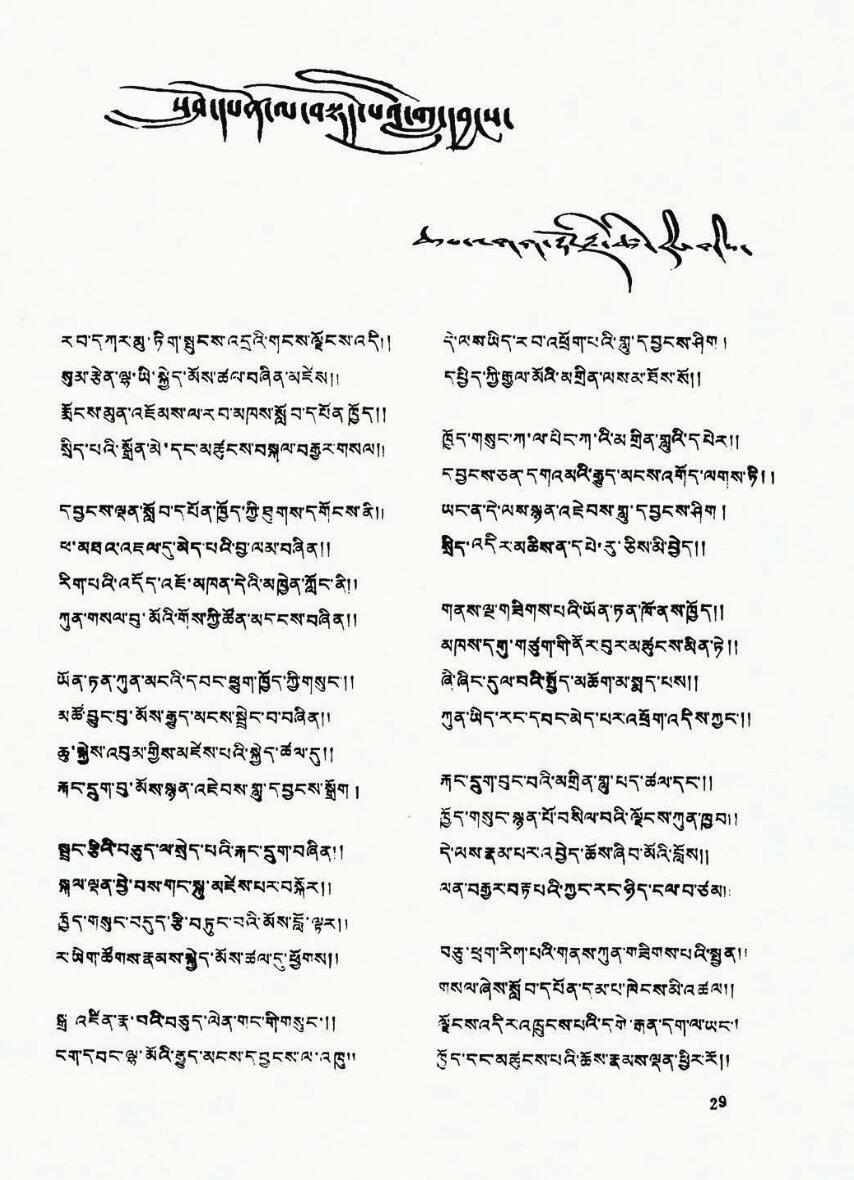 རབ་དཀར་མུ་ཏིག་སྤུངས་འདྲའི་གངས་ལྗོངས་འདི།།
སུམ་རྩེན་ལྷ་ཡི་སྐྱེད་མོས་ཚལ་བཞིན་མཛེས།།
རྨོངས་མུན་འཇོམས་ལ་རབ་མཁས་སློབ་དཔོན་ཁྱོད།།
སྲིད་པའི་སྒྲོན་མེ་དང་མཚུངས་བསྐལ་བརྒྱར་གསལ།།
དབྱངས་ལྡན་སློབ་དཔོན་ཁྱོད་ཀྱི་ཐུགས་དགོངས་ནི།།
ཕ་མཐའ་འཇལ་དུ་མེད་པའི་བྱ་ལམ་བཞིན།།
རིག་པའི་འདོད་འཇོ་མཁན་དེའི་མཁྱེན་ཀློང་ནི།།
ཀུན་གསལ་བུ་མོའི་གོས་ཀྱི་ཚོན་མདངས་བཞིན།།
ཡོན་ཏན་ཀུན་མངའི་དབང་ཕྱུག་ཁྱོད་ཀྱི་གསུང་།།
མཚོ་བྱུང་བུ་མོས་རྒྱུད་མངས་སྦྲེང་བ་བཞིན།།
ཆུ་སྐྱེས་འབུམ་གྱིས་མཛེས་པའི་སྐྱེད་ཚལ་དུ།།
རྐང་དྲུག་བུ་མོས་སྙན་འཇེབས་གླུ་དབྱངས་སྒྲོག །
སྦྲང་རྩིའི་བཅུད་ལ་སྲེད་པའི་རྐང་དྲུག་བཞིན།།
སྐལ་ལྡན་བྱེ་བས་གང་སྐུ་མཛེས་པར་བསྐོར།།
ཁྱོད་གསུང་བདུད་རྩི་བཏུང་བའི་མོས་བློ་ལྟར།།
ར་ཡིག་ཚོགས་རྣམས་སྐྱེད་མོས་ཚལ་དུ་ཕྱོགས།།
སྒྲ་འཛིན་རྣ་བའི་བཅུད་ལེན་གང་གི་གསུང་།།
ངག་དབང་ལྷ་མོའི་རྒྱུད་མངས་དབྱངས་ལ་འཁུ།།
དེ་ལས་ཡིད་རབ་འཕྲོག་པའི་གླུ་དབྱངས་ཤིག །
དཔྱིད་ཀྱི་རྒྱལ་མོའི་མགྲིན་ལས་མ་ཐོས་སོ།།
ཁྱོད་གསུང་ཀ་ལ་པིང་ཀ་འི་མགྲིན་གླུའི་དཔེར།།
དབྱངས་ཅན་དགའ་མའི་རྒྱུད་མངས་འགོད་ལགས་ཏེ།།
ཡང་ན་དེ་ལས་སྙན་འཇེབས་གླུ་དབྱངས་ཤིག །
སྲིད་འདིར་མཆིས་ན་དཔེ་རུ་ཅིས་མི་བྱེད།།
གནས་ལྔ་གཟིགས་པའི་ཡོན་ཏན་ཁོ་ནས་ཁྱོད།།
མཁས་དགུ་གཙུག་གི་ནོར་བུར་མཚུངས་མིན་ཏེ།།
ཞེ་ཞིང་དུལ་བའི་སྤྱོད་མཆོག་མ་སྨད་པས།།
ཀུན་ཡིད་རང་དབང་མེད་པར་འཕྲོག་འདིས་ཀྱང་།།
རྐང་དྲུག་བུང་བའི་མགྲིན་གླུ་པད་ཚལ་དང་།།
ཁྱོད་གསུང་སྙན་པོ་བསིལ་བའི་ལྗོངས་ཀུན་ཁྱབ།།
དེ་ལས་རྣམ་པར་འབྱེད་ཆོས་ཞིབ་མོའི་བློས།།
ལན་བརྒྱར་བརྟག་པའི་ཀྱང་རང་ཉིད་ངལ་བ་ཙམ།།
བཅུ་ཕྲག་རིག་པའི་གནས་ཀུན་གཟིགས་པའི་སྤྱན།།
གསལ་ཞེས་སློབ་དཔོན་དམ་པ་ཁེངས་མི་འཚལ།།
ལྗོངས་འདིར་འཁྲུངས་པའི་དགེ་རྒན་དག་ལ་ཡང་།
ཁྱོད་དང་མཚུངས་པའི་ཆོས་རྣམས་ལྡན་ཕྱིར་རོ།།
29